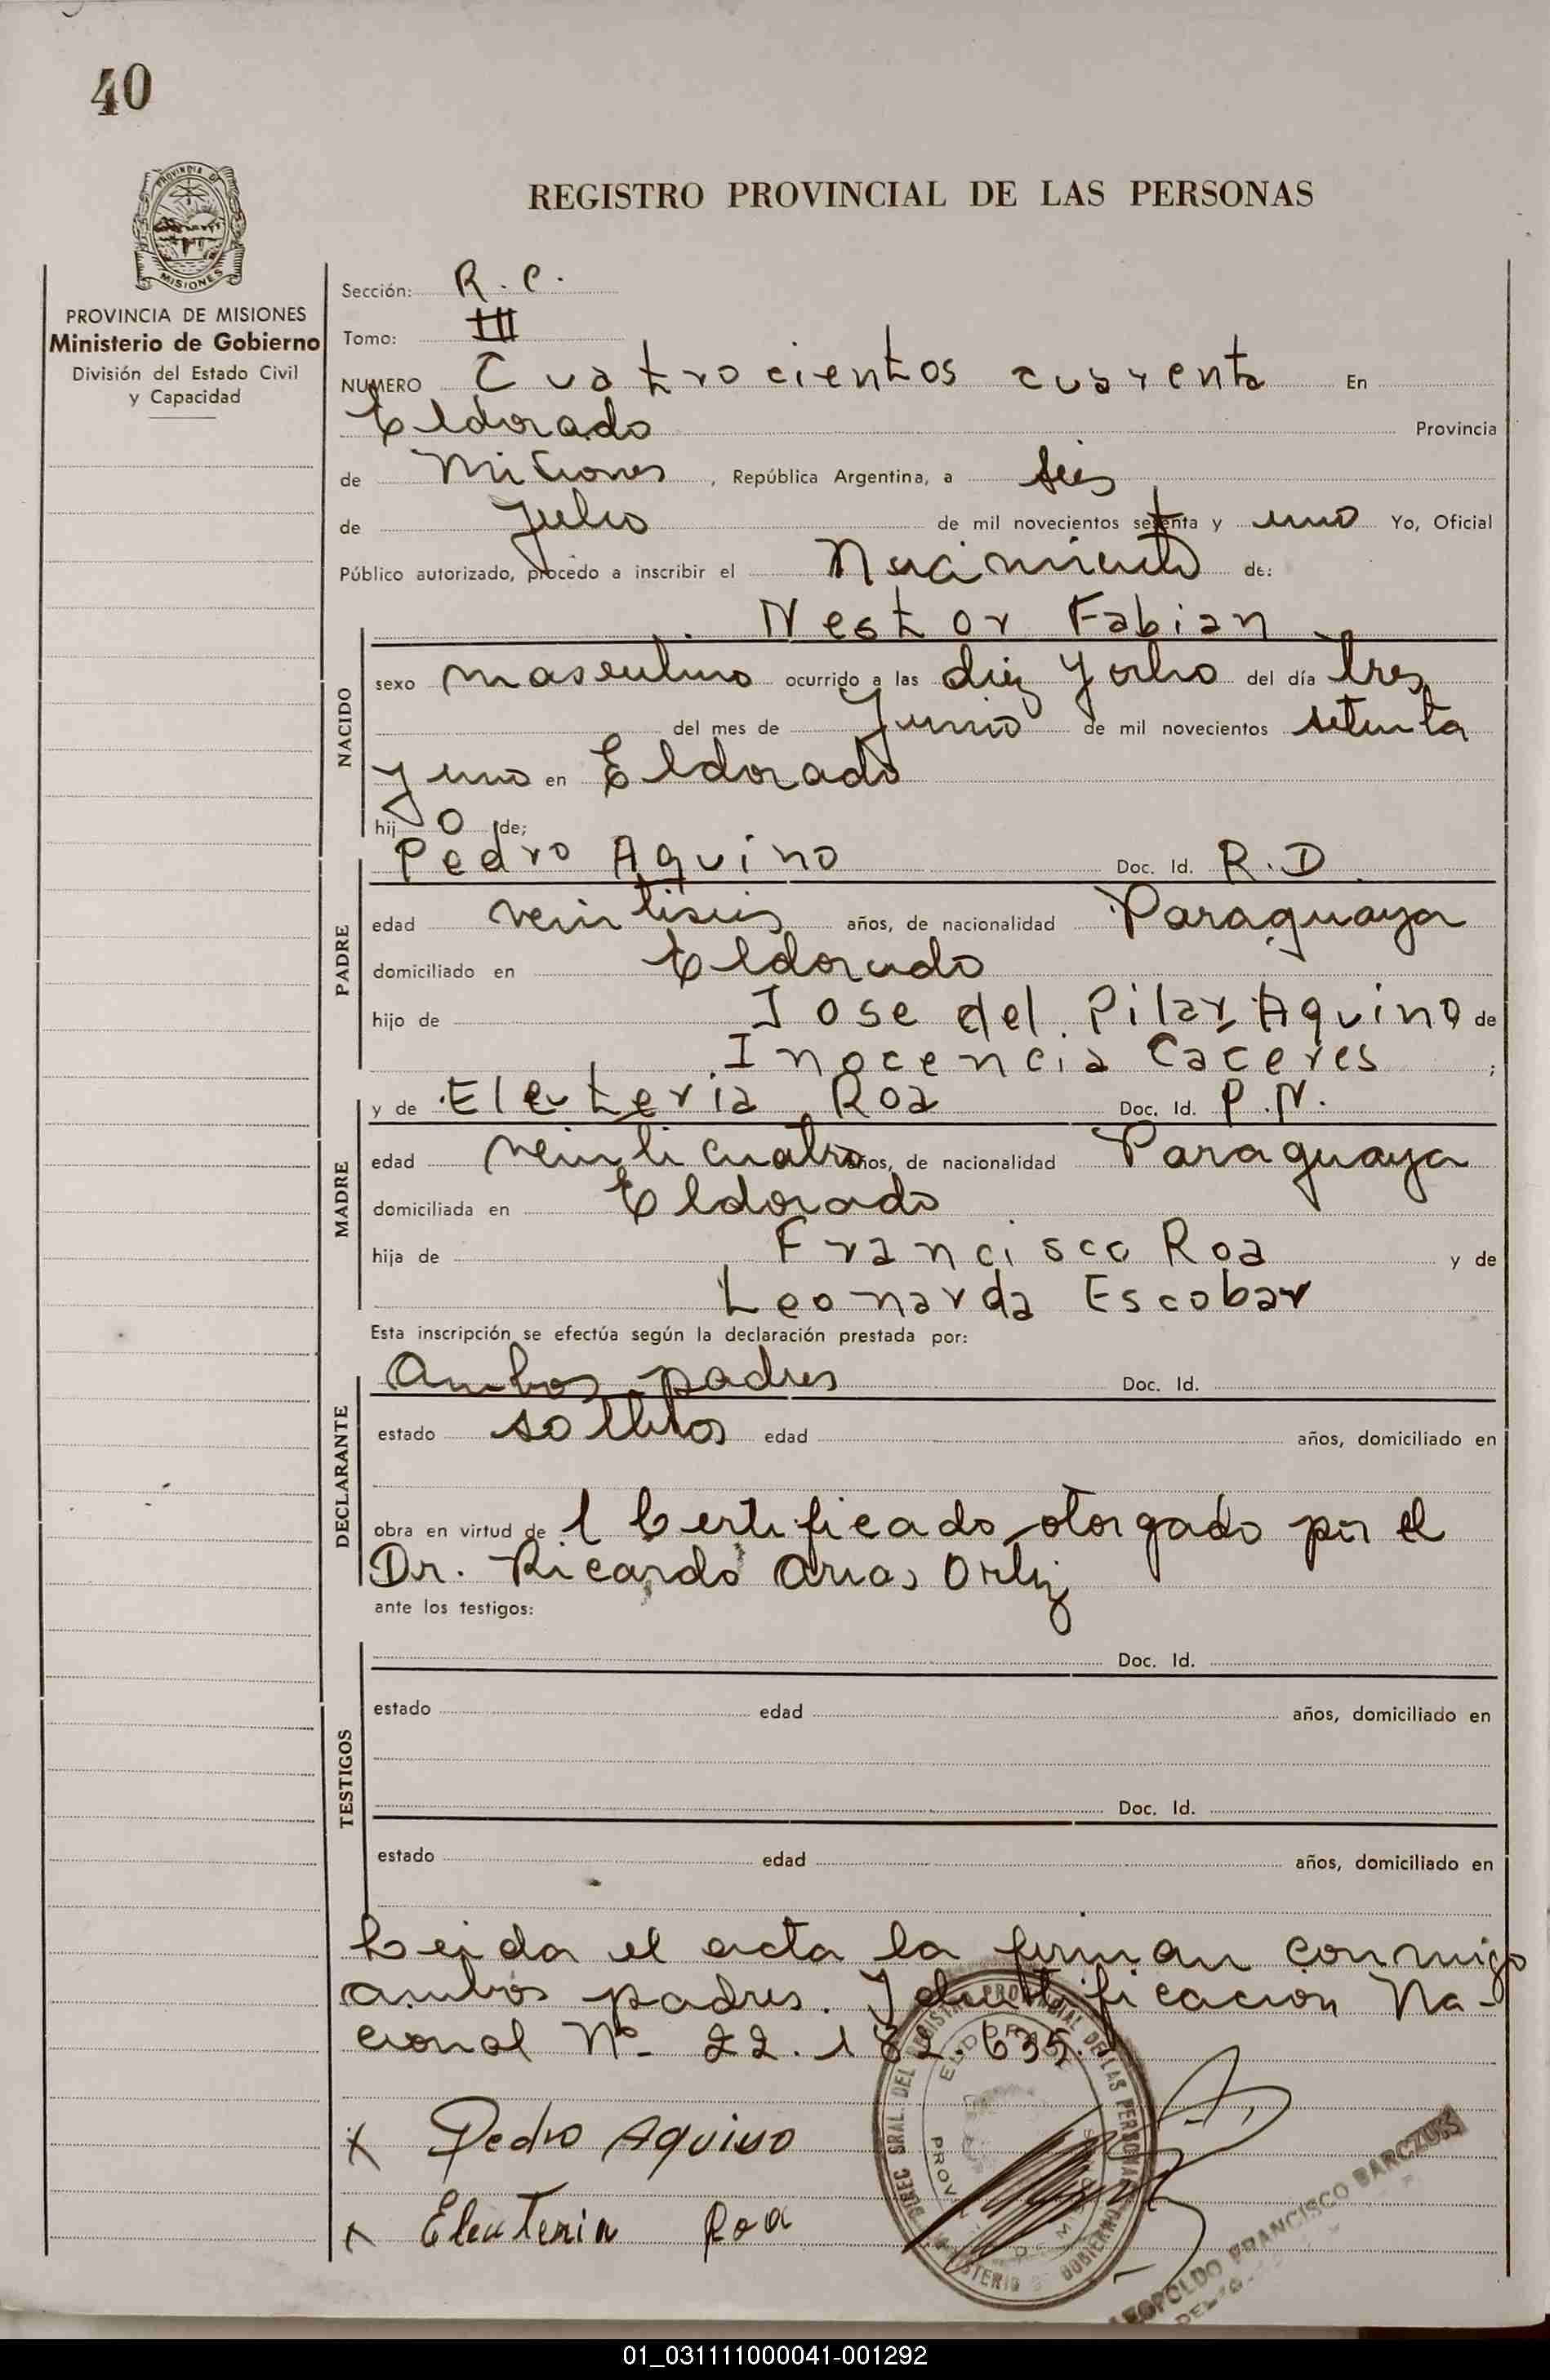 40
PROVINCIA DE
MISIONES
PROVINCIA DE MISIONES
Ministerio de Gobierno
División del Estado Civil
y Capacidad
REGISTRO PROVINCIAL DE LAS PERSONAS
Sección: R. C.
Tomo: III
NUMERO Cuatrocientos cuarenta En
Eldorado Provincia
de Misiones, República Argentina, a seis
de Julio de mil novecientos setenta y uno Yo, Oficial
Público autorizado, procedo a inscribir el Nacimiento de:
NACIDO
Nestor Fabian
sexo masculino ocurrido a las diez y ocho del día tres
del mes de Junio de mil novecientos setenta
y uno en Eldorado
hij o de;
PADRE
Pedro Aquino Doc. Id. R.D.
edad veintiseis años, de nacionalidad Paraguaya
domiciliado en Eldorado
hijo de Jose del Pilar Aquino de
Inocencia Caceres ;
MADRE
y de Eleuteria Roa Doc. Id. P.N.
edad veinticuatro años, de nacionalidad Paraguaya
domiciliada en Eldorado
hija de Francisco Roa y de
Leonarda Escobar
Esta inscripción se efectúa según la declaración prestada por:
DECLARANTE
Ambos padres Doc. Id.
estado solteros edad años, domiciliado en
obra en virtud de 1 Certificado otorgado por el
Dr. Ricardo Arias Ortiz
ante los testigos:
TESTIGOS
Doc. Id.
estado edad años, domiciliado en
Doc. Id.
estado edad años, domiciliado en
Leida el acta la firman conmigo
ambos padres. Identificacion Na-
cional Nº 22.182.635.
x Pedro Aquino
x Eleuteria Roa
DIREC. GRAL. DEL REGISTRO PROVINCIAL DE LAS PERSONAS
MINISTERIO DE GOBIERNO
LEOPOLDO FRANCISCO BARCZUK
01_031111000041-001292